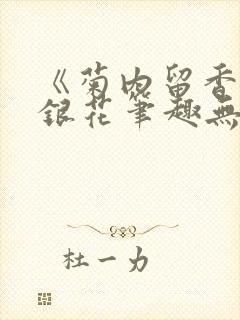 《菊内留香
銀花筆趣無
杜一力